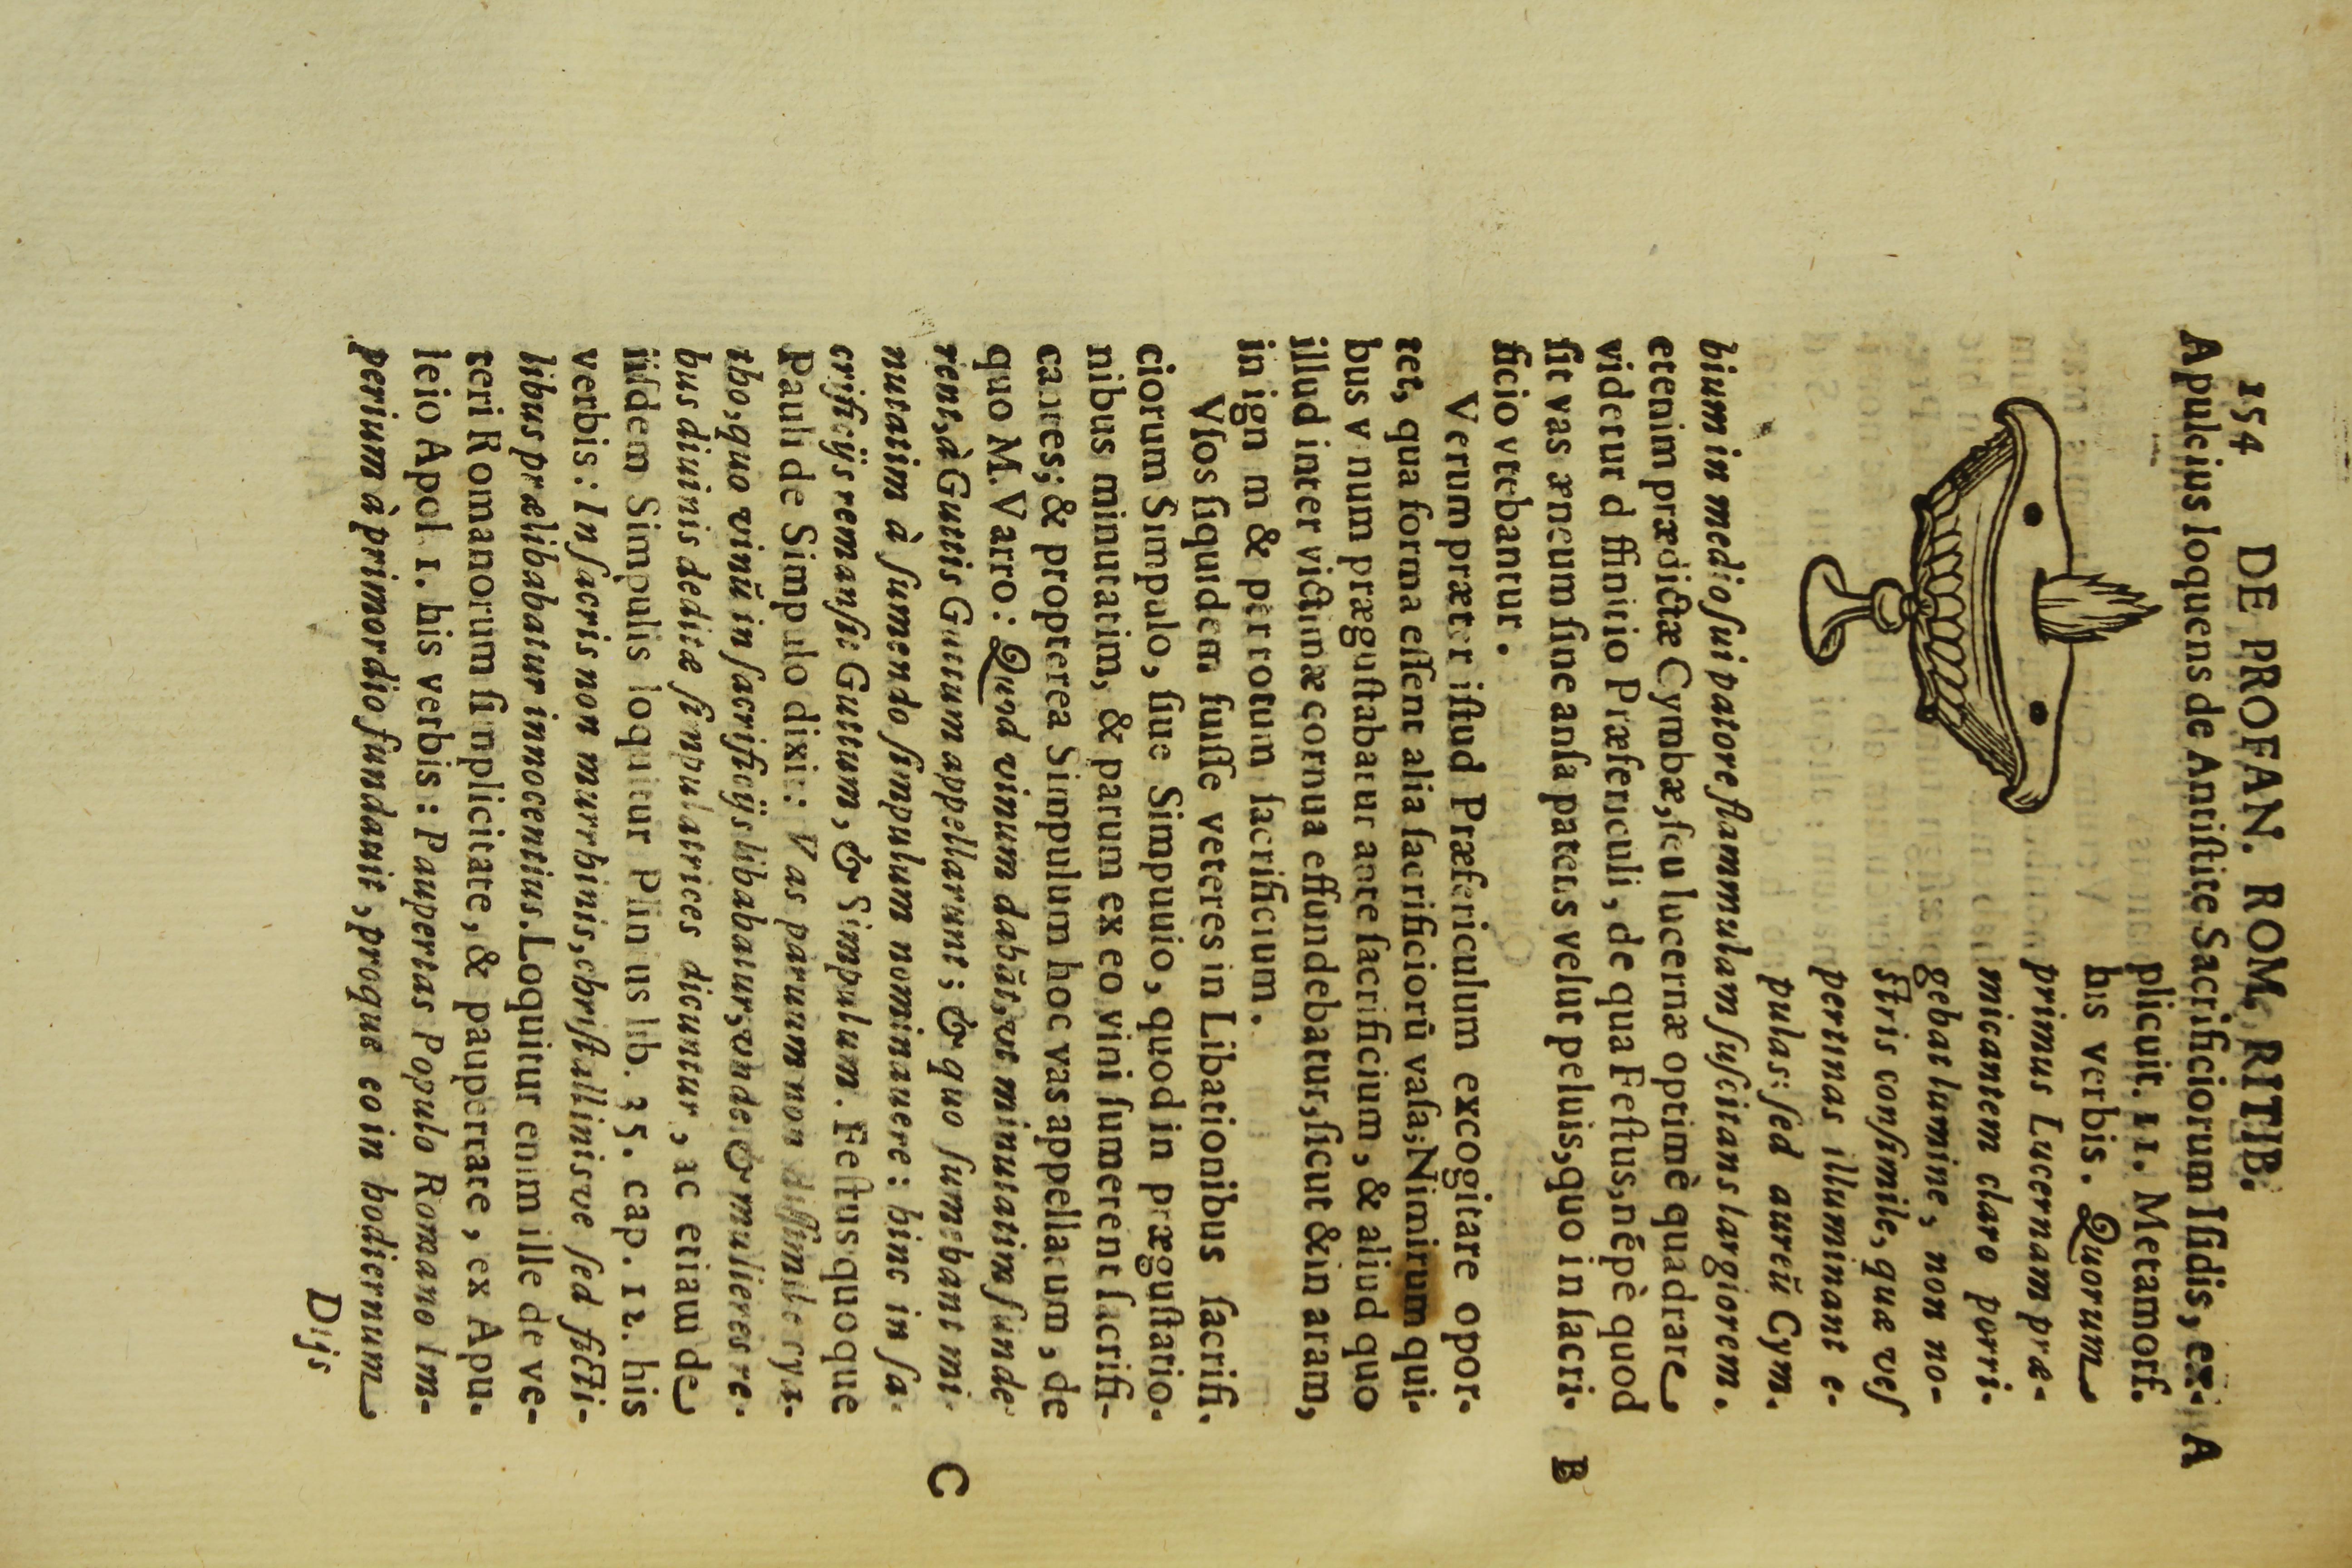 154 DE PROFAN. ROM. RITIB.
Apuleius loquens de Antiſtite Sacrificiorum Iſidis, ex- A
plicuit. 11. Metamorf.
his verbis. Quorum
primus Lucernam præ-
micantem claro porri-
gebat lumine, non no-
ſtris conſimile, quæ veſ
pertinas illuminant e-
pulas: ſed aureũ Cym-
bium in medio ſui patore flammulam ſuſcitans largiorem.
etenim prædictæ Cymbæ, ſeu lucernæ optimè quadrare
videtur d ffinitio Præfericuli, de qua Feſtus, nẽpè quod
ſit vas æneum ſine anſa patens velut peluis, quo in ſacri- B
ficio vtebantur.
Verum præter iſtud Præfericulum excogitare opor-
tet, qua forma eſſent alia ſacrificiorũ vaſa; Nimirum qui-
bus vinum præguſtabatur ante ſacrificium, & aliud quo
illud inter victimæ cornua effundebatur, ſicut & in aram,
in ign m & per totum ſacrificium.
Vſos ſiquidem fuiſſe veteres in Libationibus ſacrifi-
ciorum Simpulo, ſiue Simpuuio, quod in præguſtatio-
nibus minutatim, & parum ex eo vini ſumerent ſacrifi-
cantes; & propterea Simpulum hoc vas appellatum, de
quo M. Varro: Quid vinum dabãt, vt minutatim funde
rent, à Guttis Guttum appellarunt; & quo ſumebant mi
nutatim à ſumendo ſimpulum nominauere: hinc in ſa- C
crificijs remanſit Guttum, & Simpulum. Feſtus quoque
Pauli de Simpulo dixit: Vas paruum non diſſimile cya-
tho, quo vinũ in ſacrificijs libabatur, vnde & mulieres re-
bus diuinis deditæ ſimpulatrices dicuntur, ac etiam de
ijſdem Simpulis loquitur Plinius lib. 35. cap. 12. his
verbis: In ſacris non murrhinis, chriſtallinisve ſed fićti-
libus prælibabatur innocentius. Loquitur enim ille de ve-
teri Romanorum ſimplicitate, & paupertate, ex Apu-
leio Apol 1. his verbis: Paupertas Populo Romano Im-
perium à primordio fundauit, proque eo in hodiernum
Dijs